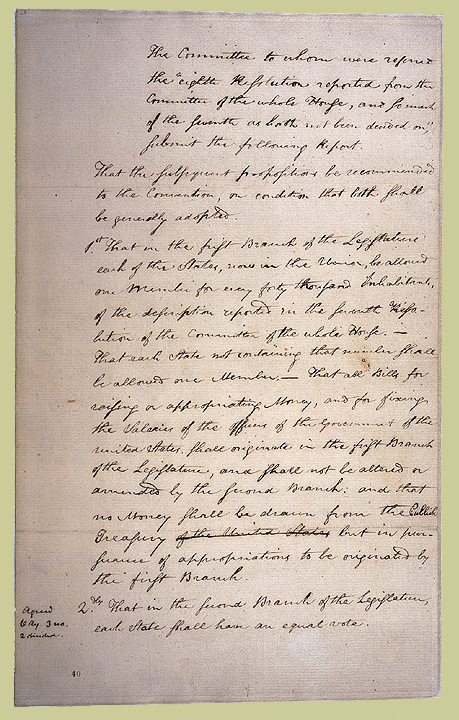 The Committee to whom were referred
the "eighth Resolution reported from the
Committee of the whole House, and so much
of the seventh as hath not been decided on,"
submit the following Report.
That the subsequent propositions be recommended
to the Convention, on condition that both shall
be generally adopted.
1.st That in the first Branch of the Legislature
each of the States, now in the Union, be allowed
one Member for every forty thousand Inhabitants,
of the description reported in the seventh Reso-
lution of the Committee of the whole House. —
That each State not containing that number shall
be allowed one Member. — That all Bills for
raising or appropriating Money, and for fixing
the Salaries of the officers of the Government of the
United States shall originate in the first Branch
of the Legislature, and shall not be altered or
amended by the second Branch: and that
no Money shall be drawn from the Public
Treasury of the United States but in pur-
suance of appropriations to be originated by
the first Branch.
2.dly That in the second Branch of the Legislature,
each State shall have an equal vote.
Agreed
6 ay. 3 no.
2 divided.
40